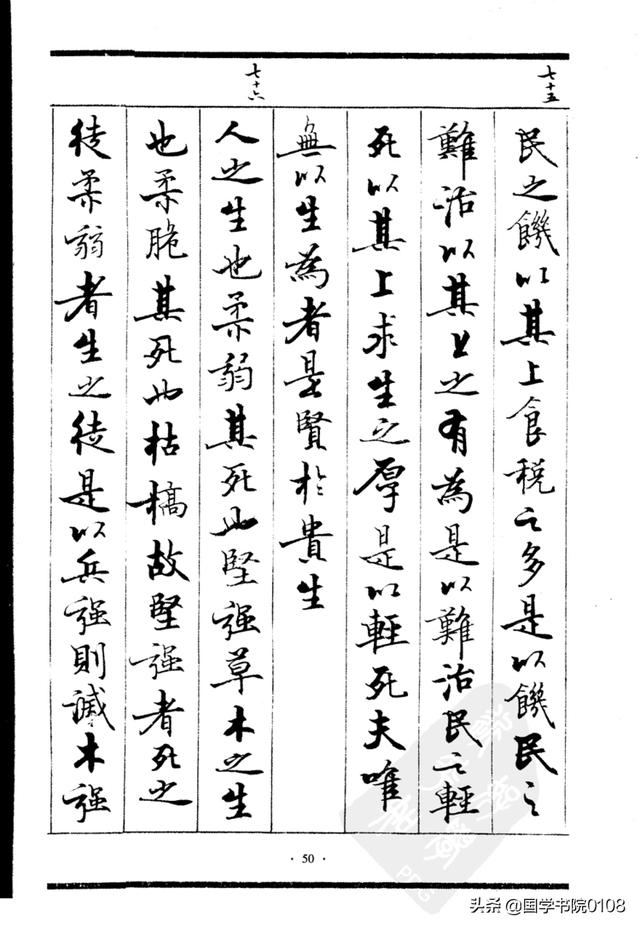 七十五
民之饑以其上食税之多是以饑民之
難治以其上之有為是以難治民之輕
死以其上求生之厚是以輕死夫唯
無以生為者是賢於貴生
七十六
人之生也柔弱其死也堅强草木之生
也柔脆其死也枯槁故堅强者死之
徒柔弱者生之徒是以兵强則滅木强
· 50 ·
PDG
头条 @国学书院0108